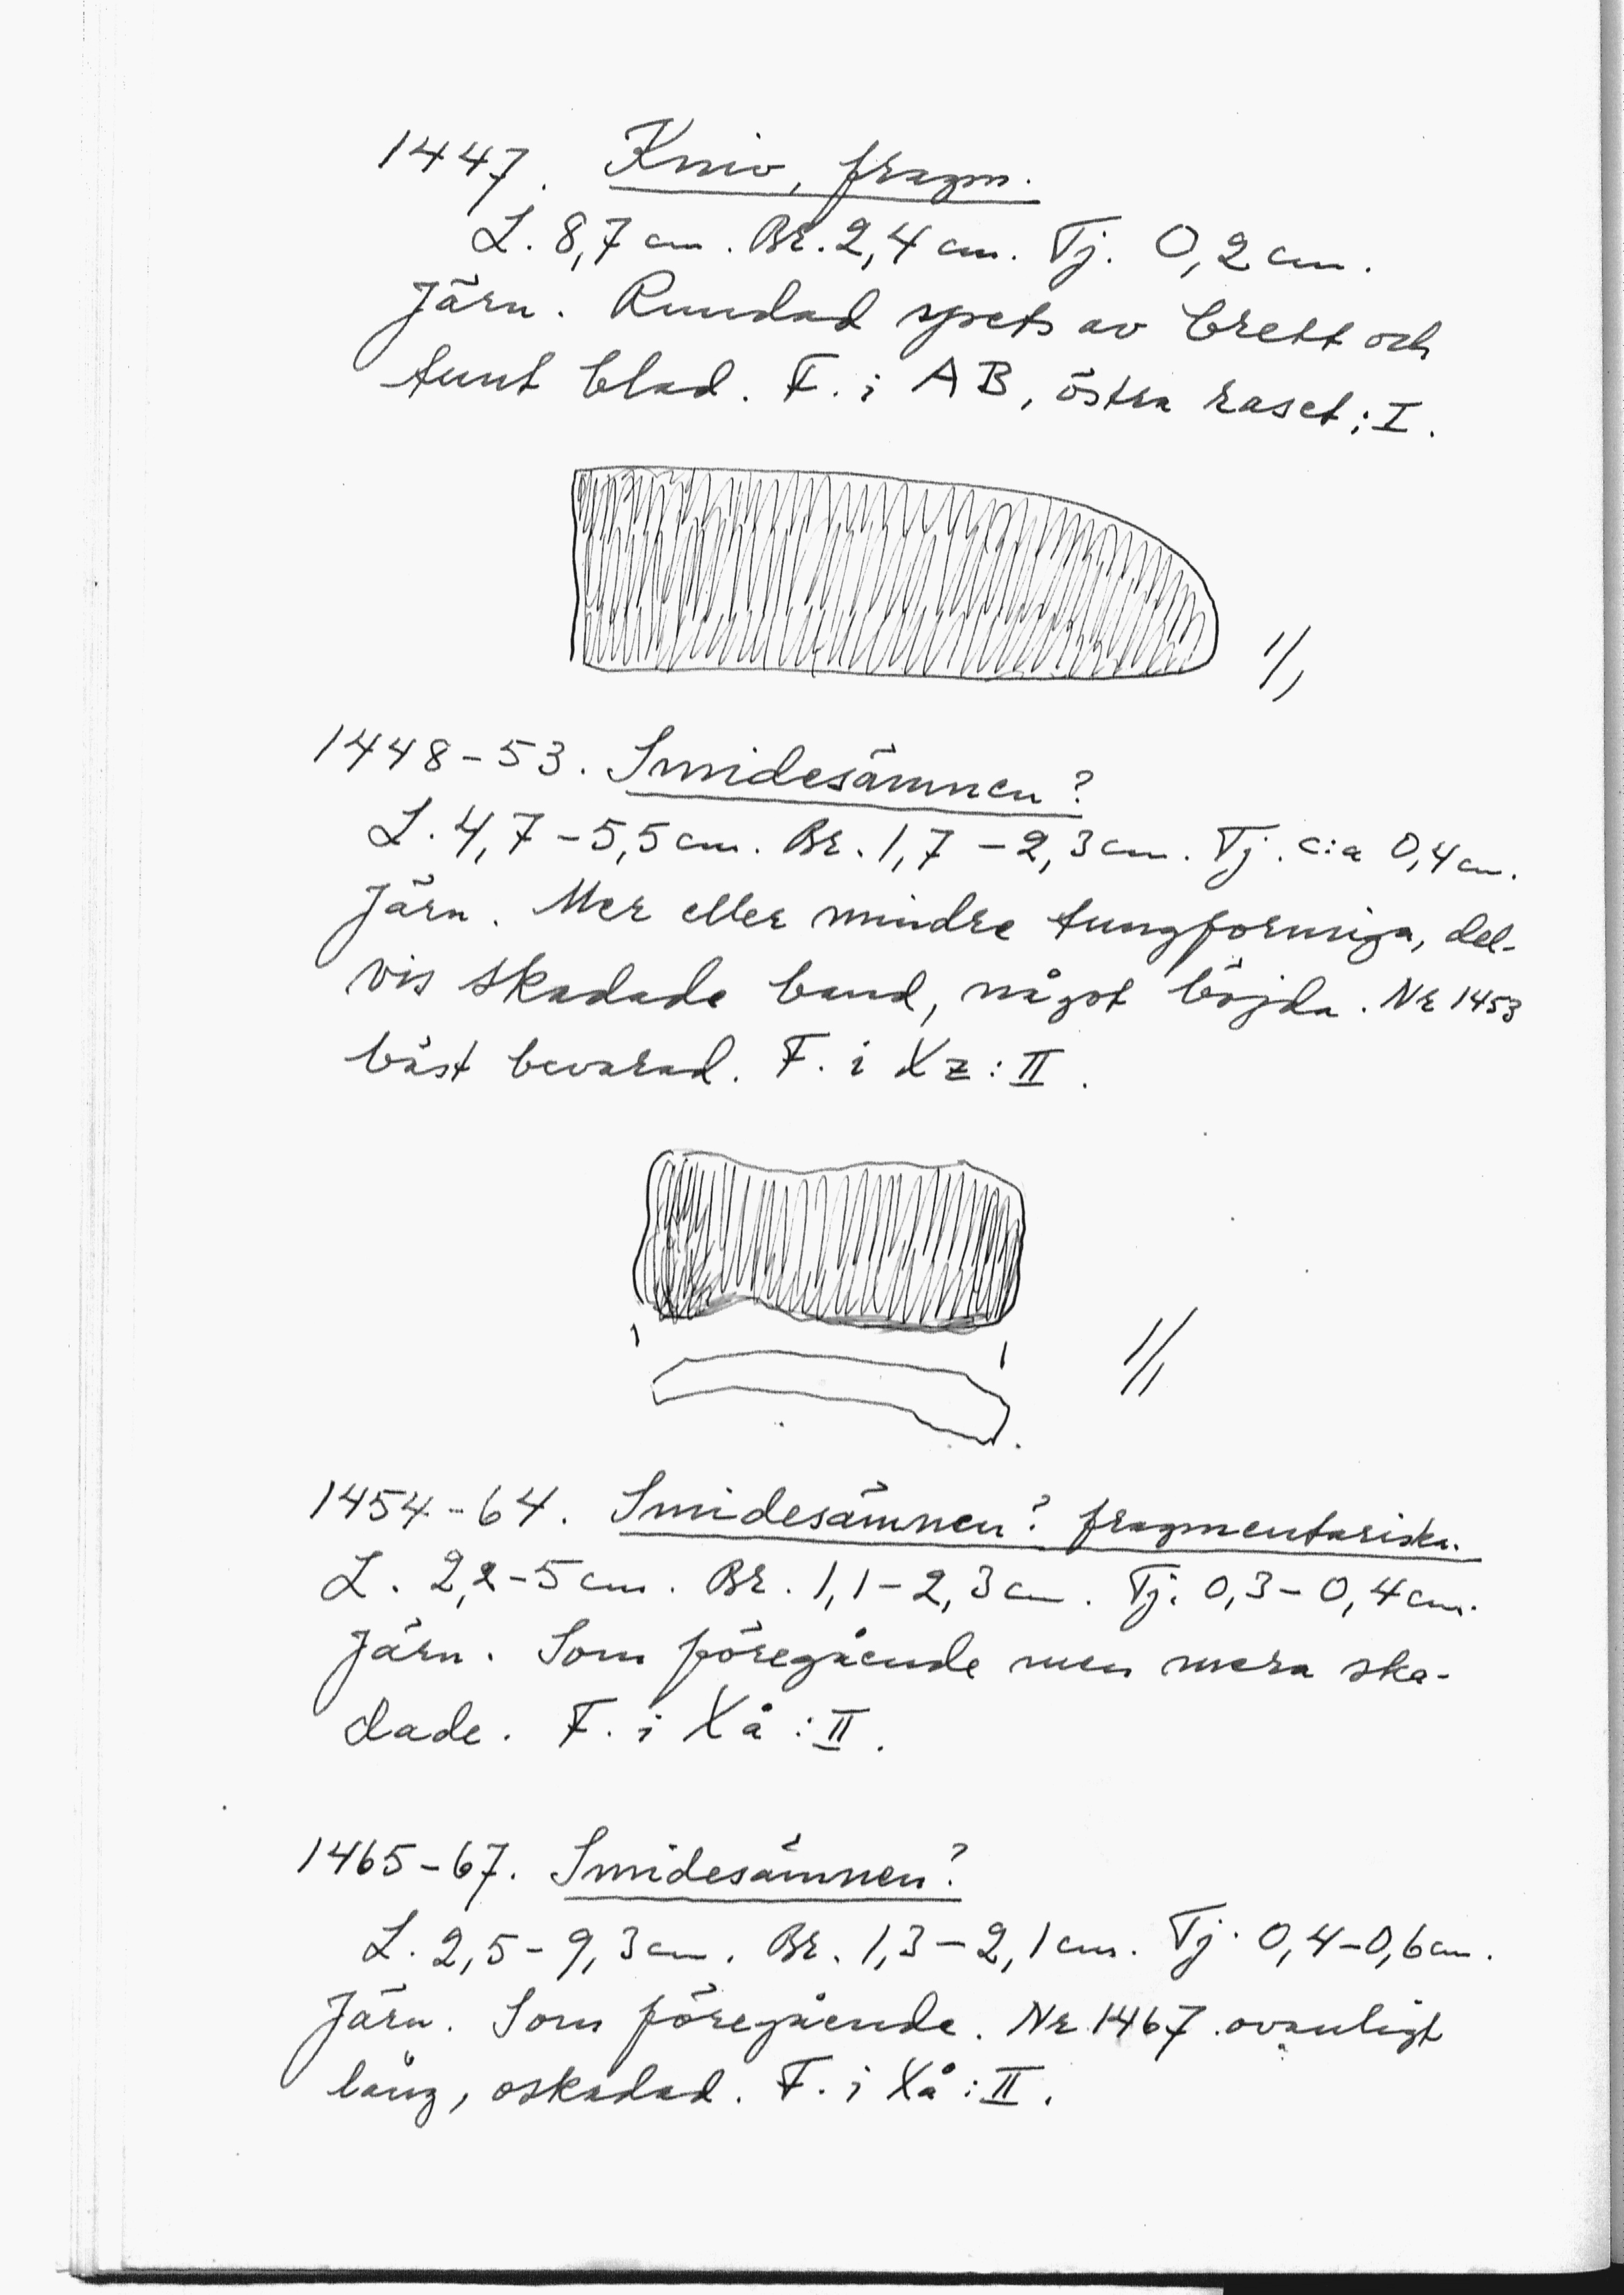 1447. Kniv, fragm.
L. 8,7 cm. Br. 2,4 cm. Tj. 0,2 cm.
Järn. Rundad spets av brett och
tunt blad. F. i AB, östra raset; I.
1/1
1448-53. Smidesämnen?
L. 4,7-5,5 cm. Br. 1,7-2,3 cm. Tj. c:a 0,4 cm.
Järn. Mer eller mindre tungformiga, del-
vis skadade band, något böjda. Nr 1453
bäst bevarad. F. i Xz: II.
1/1
1454-64. Smidesämnen? fragmentariska.
L. 2,2-5 cm. Br. 1,1-2,3 cm. Tj. 0,3-0,4 cm.
Järn. Som föregående men mera ska-
dade. F. i Xå: II.
1465-67. Smidesämnen?
L. 2,5-9,3 cm. Br. 1,3-2,1 cm. Tj. 0,4-0,6 cm.
Järn. Som föregående. Nr 1467 ovanligt
lång, oskadad. F. i Xå: II.